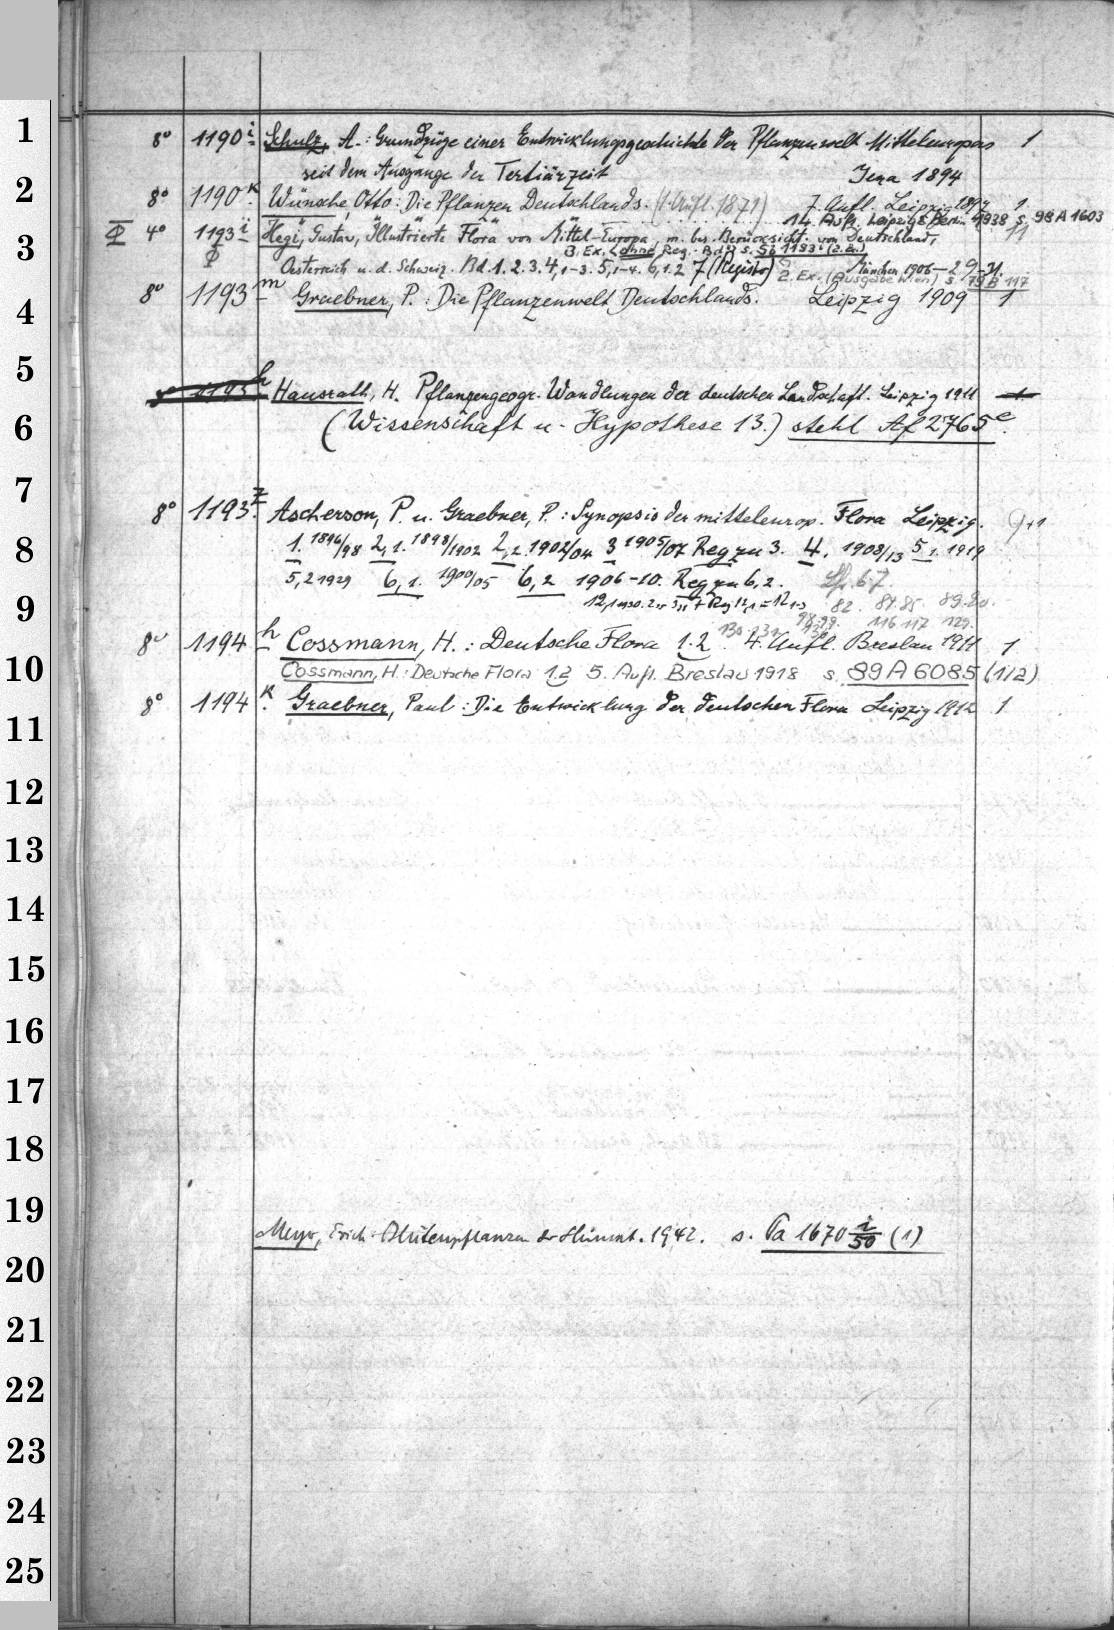 1
8° 1190 i Schulz, A.: Grundzüge einer Entwicklungsgeschichte der Pflanzenwelt Mitteleuropas 1
seit dem Ausgange der Tertiärzeit Jena 1894
2
8° 1190 k Wünsche, Otto: Die Pflanzen Deutschlands. (1. Aufl. 1871) 7. Aufl. Leipzig 1897 1
14. Aufl. Leipzig & Berlin 1938 s. 98 A 1603
3
Φ 4° 1193 i Hegi, Gustav, Illustrierte Flora von Mittel-Europa, m. bes. Berücksicht. von Deutschland, 11
Φ 3. Ex. (ohne Reg.-Bd 7) s. 1193 i (2.a.)
Oesterreich u. d. Schweiz. Bd. 1. 2. 3. 4,1-3. 5,1-4. 6,1.2 7 (Register) München 1906-29-31.
2. Ex. (Ausgabe Wien) s. 79 B 117
8° 1193 m Graebner, P.: Die Pflanzenwelt Deutschlands. Leipzig 1909 1
4
5
8° 1193 h Hausrath, H. Pflanzengeogr. Wandlungen der deutschen Landschaft. Leipzig 1911 1
6
(Wissenschaft u. Hypothese 13.) steht Af 2765 e.
7
8° 1193 z. Ascherson, P. u. Graebner, P.: Synopsis der mitteleurop. Flora Leipzig. 9+1
8
1. 1896/98 2,1. 1898/1902 2,2 1902/04 3 1905/07 Reg zu 3. 4. 1908/13 5,1. 1919
5,2 1929 6,1. 1900/05 6,2 1906-10. Reg zu 6,2. Lf. 6 7
9
82. 84. 85. 89. 90.
98.99. 116 117 129.
8° 1194 h Cossmann, H.: Deutsche Flora 1.2 4. Aufl. Breslau 1911 1
10
Cossmann, H.: Deutsche Flora 1.2 5. Aufl. Breslau 1918 s. 89 A 6085 (1/2)
8° 1194 k. Graebner, Paul: Die Entwicklung der deutschen Flora Leipzig 1912 1
11
12
13
14
15
16
17
18
19
Meyer, Erich: Blütenpflanzen der 1942. s. Pa 1670 i/50 (1)
20
21
22
23
24
25